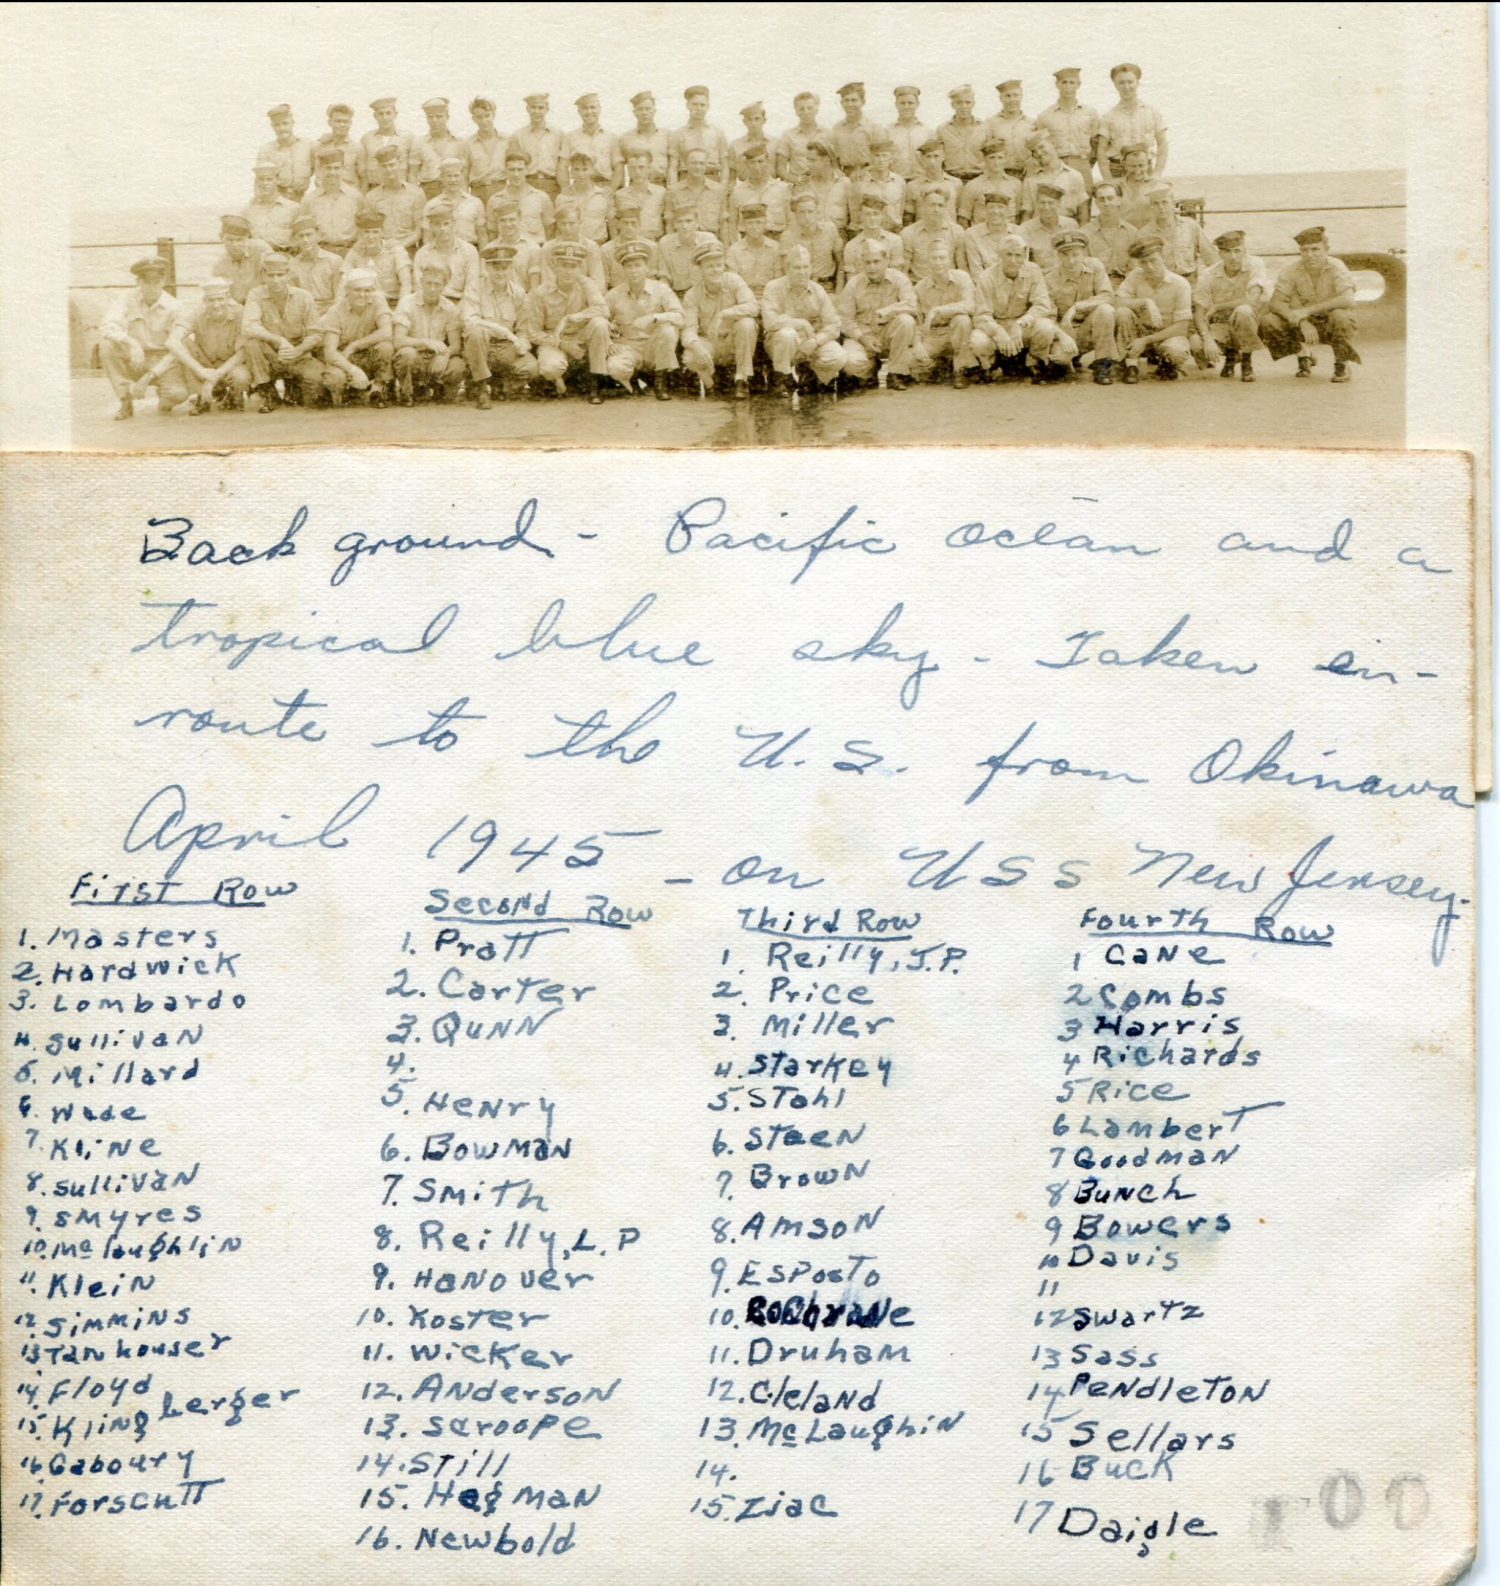 Back ground - Pacific ocean and a
tropical blue sky - Taken en-
route to the U.S. from Okinawa
April 1945 - on USS New Jersey.
First Row
1. Masters
2. Hardwick
3. Lombardo
4. Sullivan
5. Millard
6. Wade
7. Kline
8. Sullivan
9. Smyres
10. McLaughlin
11. Klein
12. Simmins
13. Tanhouser
14. Floyd
15. Klingberger
16. Gaboury
17. Forscutt
Second Row
1. Pratt
2. Carter
3. Qunn
4.
5. Henry
6. Bowman
7. Smith
8. Reilly, L.P
9. Hanover
10. Koster
11. Wicker
12. Anderson
13. Scroope
14. Still
15. Hegman
16. Newbold
Third Row
1. Reilly, J.P.
2. Price
3. Miller
4. Starkey
5. Stahl
6. Steen
7. Brown
8. Amson
9. Esposto
10. Cochrane
11. Druham
12. Cleland
13. McLaughin
14.
15. Ziac
Fourth Row
1 Cane
2 Combs
3 Harris
4 Richards
5 Rice
6 Lambert
7 Goodman
8 Bunch
9 Bowers
10 Davis
11
12 Swartz
13 Sass
14 Pendleton
15 Sellars
16 Buck
17 Daigle
100